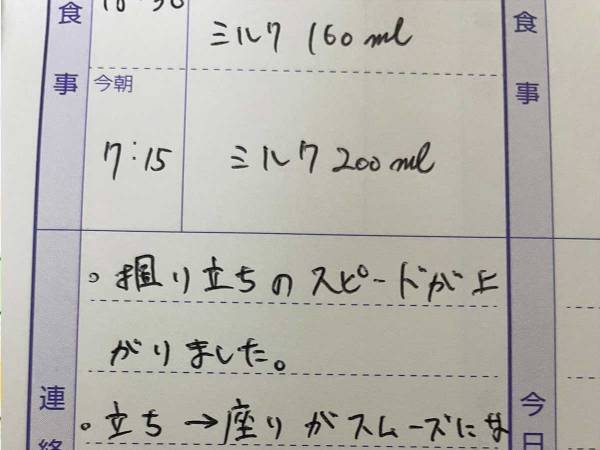 食事
ミルク 160ml
今朝
7:15 ミルク 200ml
。掴り立ちのスピードが上
がりました。
連
。立ち→座りがスムーズにな
食事
今日